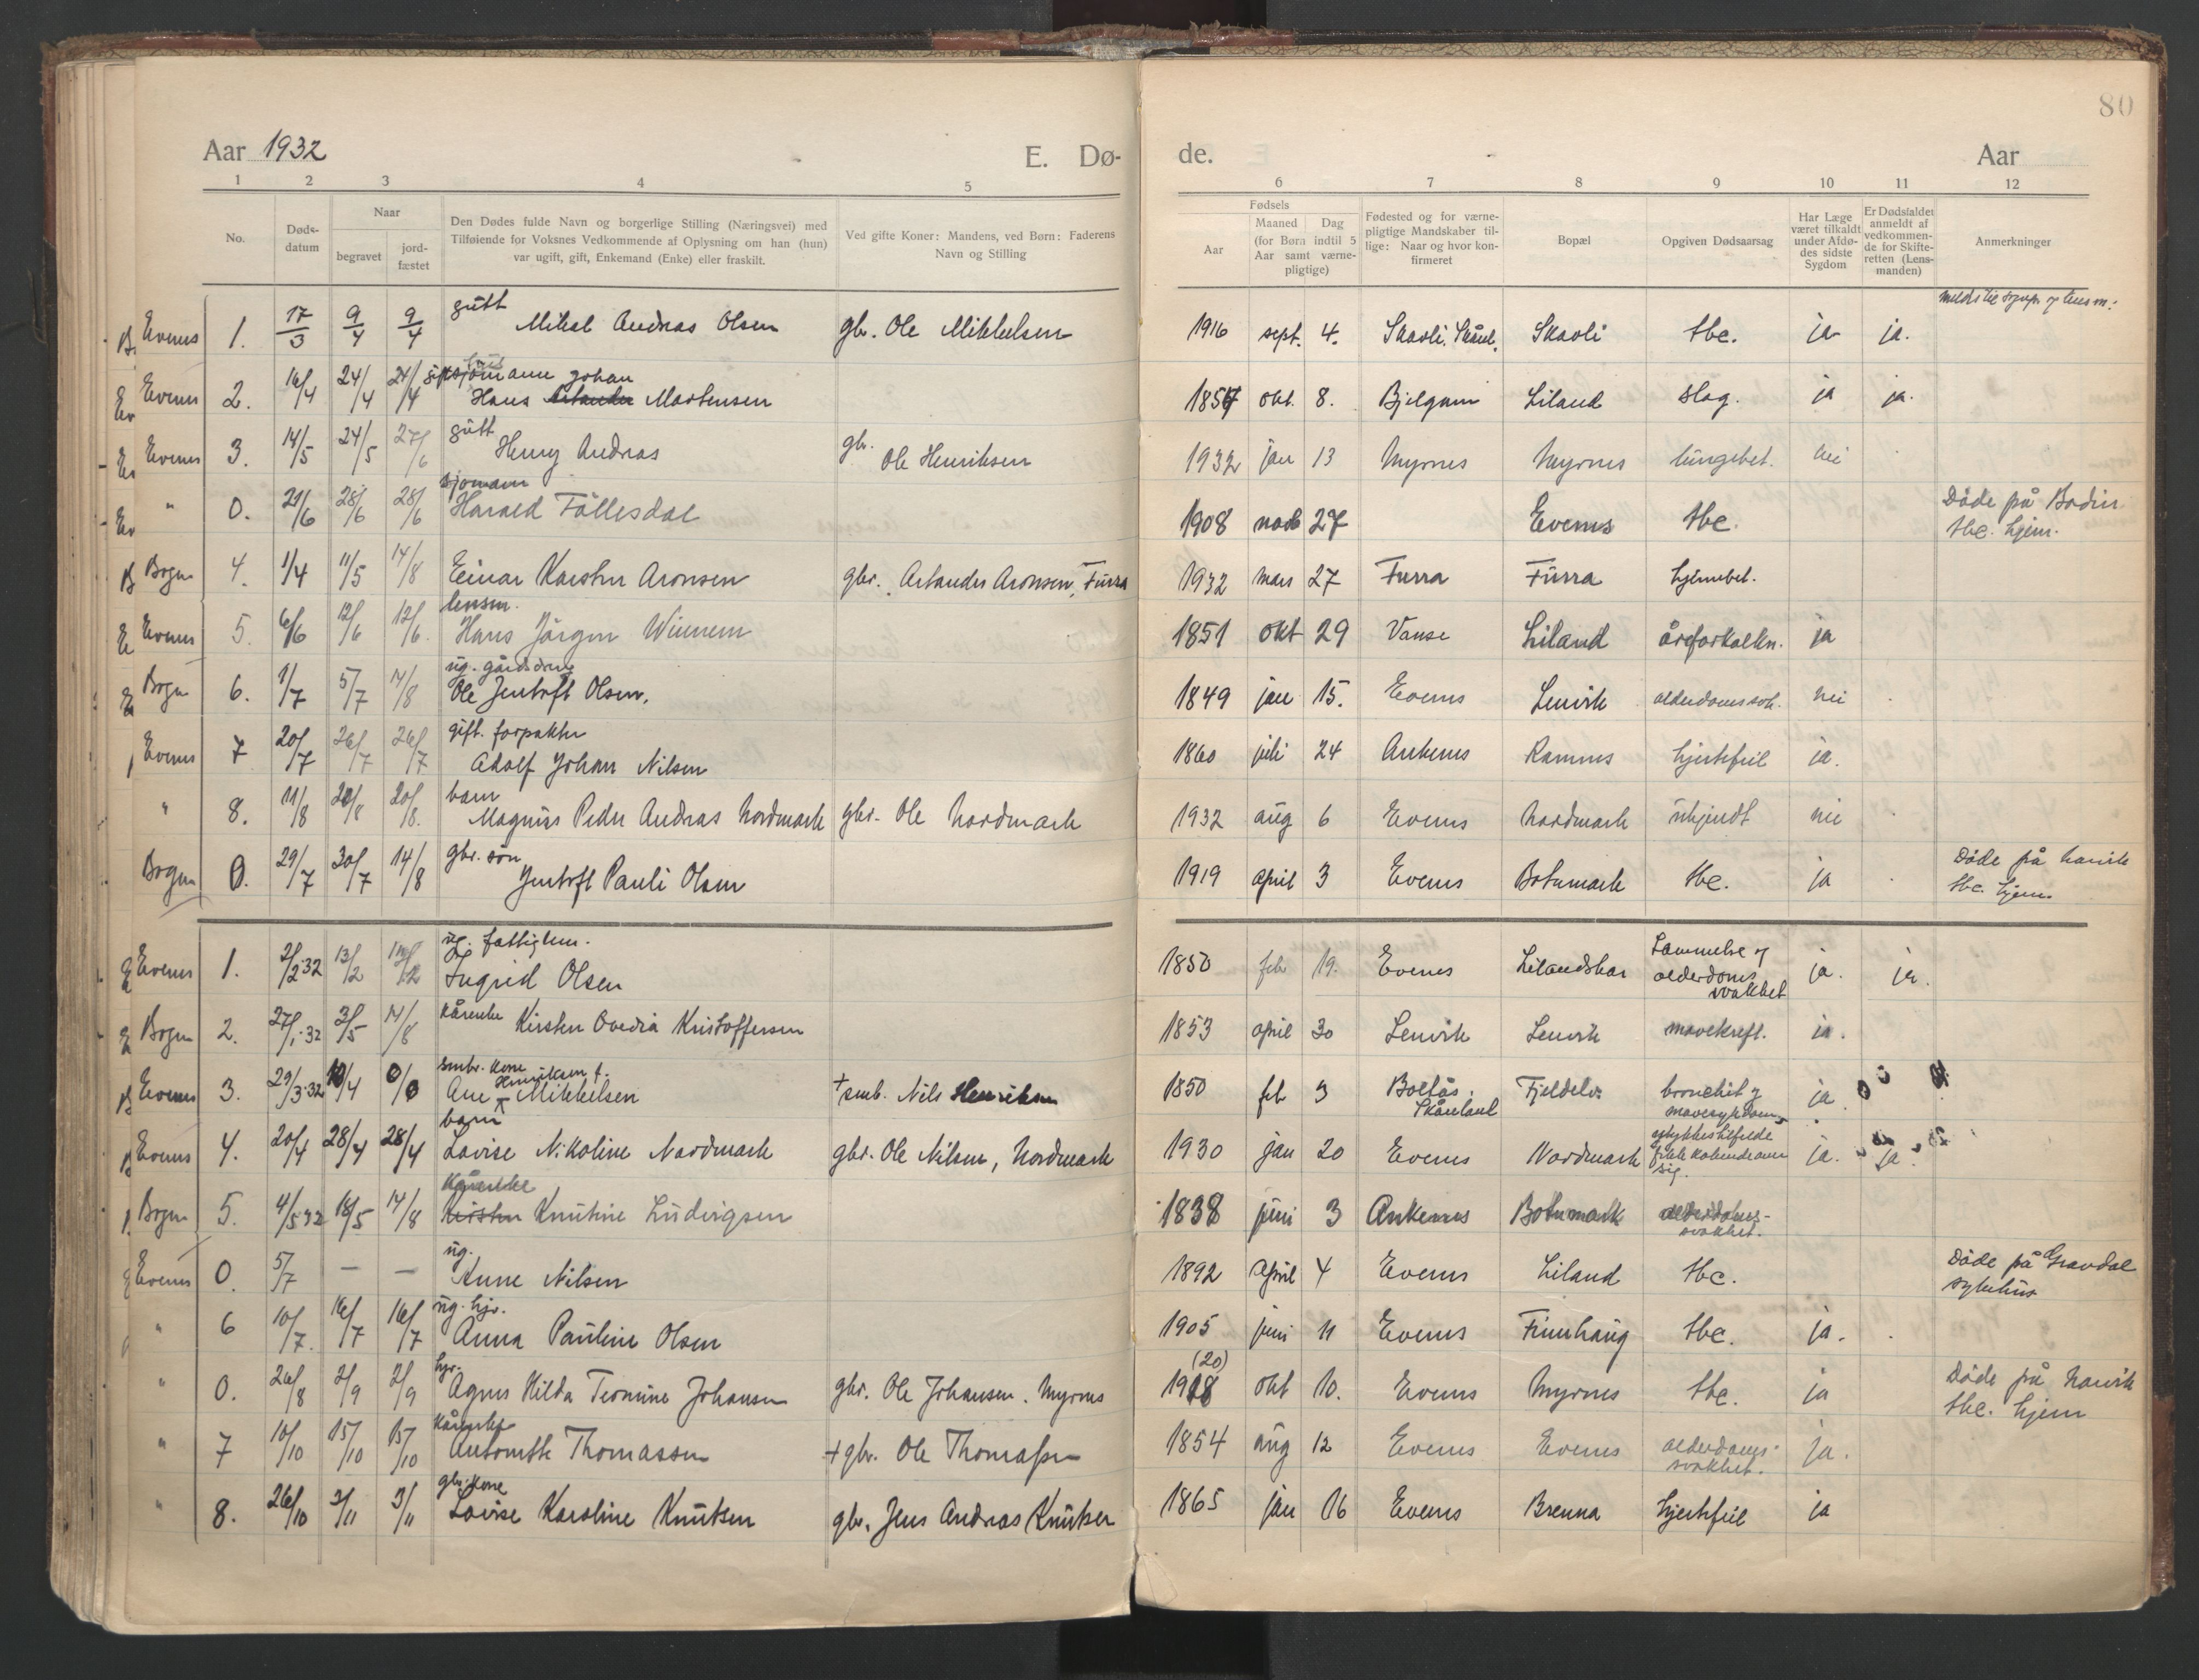 80
Aar 1932 E. Dø- de. Aar
1 2 3 4 5 6 7 8 9 10 11 12
No.
Døds-
datum
Naar
begravet
jord-
fæstet
Den Dødes fulde Navn og borgerlige Stilling (Næringsvei) med
Tilføiende for Voksnes Vedkommende af Oplysning om han (hun)
var ugift, gift, Enkemand (Enke) eller fraskilt.
Ved gifte Koner: Mandens, ved Børn: Faderens
Navn og Stilling
Fødsels
Aar
Maaned Dag
(for Børn indtil 5
Aar samt værne-
pligtige)
Fødested og for værne-
pligtige Mandskaber til-
lige: Naar og hvor kon-
firmeret
Bopæl
Opgiven Dødsaarsag
Har Læge
været tilkaldt
under Afdø-
des sidste
Sygdom
Er Dødsfaldet
anmeldt af
vedkommen-
de for Skifte-
retten (Lens-
manden)
Anmerkninger
gutt
Evenes 1. 17/3 9/4 9/4 Mikal Andreas Olsen gbr. Ole Mikkelsen 1916 sept. 4. Skavli. Skånl. Skavli tbc. ja ja.
Johan
Evenes 2. 16/4 24/4 24/4 Hans Martensen 1857 okt. 8. Liland slag. ja ja.
gutt
Evenes 3. 14/5 24/5 27/6 Henry Andreas gbr. Ole Henriksen 1932 jan 13 Myrnes Myrnes lungebet. nei
sjømann
" 0. 21/6 28/6 28/6 Harald Föllesdal 1908 novb 27 Evenes tbc. Døde på Bodin
tbc. hjem.
Bogen 4. 1/4 11/5 14/8 Einar Karsten Aronsen gbr. Artander Aronsen, Furra 1932 mars 27 Furra Furra hjernebet.
lensm.
Evenes 5. 6/6 12/6 12/6. Hans Jörgen Winnem 1851 okt 29 Vanse Liland åreforkalkn. ja
ug. gårdsdreng
Bogen 6. 1/7 5/7 14/8 Ole Jentoft Olsen. 1849 jan 15. Evenes Lenvik alderdomssvk. nei
gift. forpakter
Evenes 7 20/7 26/7 26/7 Adolf Johan Nilsen 1860 juli 24 Ankenes Ramnes hjertefeil ja.
barn
" 8. 11/8 20/8 20/8. Magnus Peder Andreas Nordmark gbr. Ole Nordmark 1932 aug 6 Evenes Nordmark ukjendt nei
gbr. søn
Bogen 0. 29/7 30/7 14/8 Jentoft Pauli Olsen 1919 april 3 Evenes Botnmark tbc. ja Døde på Narvik
tbc. hjem.
ug. fattiglem.
Evenes 1. 2/2 32 13/2 Ingrid Olsen 1850 feb 19. Evenes Lammelse og
alderdoms
svakhet ja. ja.
kårenke
Bogen 2. 27/1 32 3/5 14/8 Kirsten Ovedia Kristoffersen 1853 april 30 Lenvik Lenvik mavekreft. ja.
smbr. kone
Henriksen f.
Evenes 3. 29/3 32 10/4 Ane Mikkelsen + smb. Nils Henriksen 1850 feb 9 Boltås.
Skånland Fjeldelv. bronchit og
mavesykdom ja
barn
Evenes 4. 20/4 28/4 28/4 Lovise Nikoline Nordmark gbr. Ole Nilsen, Nordmark 1930 jan 20 Evenes Nordmark ulykkestilfelde
fikk kokende over
sig. ja. ja
Kårenke
Bogen 5. 4/5 32 18/5 14/8 Kirsten Knutine Ludvigsen 1838 juni 3 Ankenes Botnmark alderdoms-
svakhet.
ug.
Evenes 0. 5/7 — — Anne Nilsen 1892 april 4 Evenes Liland tbc. Døde på Gravdal
sykehus
ug. hjv.
" 6 10/7. 16/7 16/7 Anna Pauline Olsen 1905 juni 11 Evenes Finnhaug tbc. ja.
hjv. (20)
" 0. 26/8 2/9 2/9 Agnes Hilda Teomine Johansen gbr. Ole Johansen. Myrnes 1918 okt 10. Evenes Myrnes tbc. ja Døde på Narvik
tbc. hjem
Kårenke
" 7 10/10 15/10 15/10 Antonette Thomassen + gbr. Ole Thomassen 1854 aug 12 Evenes Evenes alderdoms-
svakhet. ja.
gbr. kone
" 8. 26/10 3/11 3/11 Lovise Karoline Knutsen gbr. Jens Andreas Knutsen 1865 jan 16 Evenes Brenna hjertefeil ja